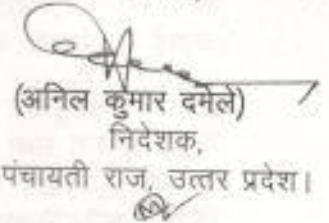 (अनिल कुमार दमेले)
निदेशक,
पंचायती राज, उत्तर प्रदेश।